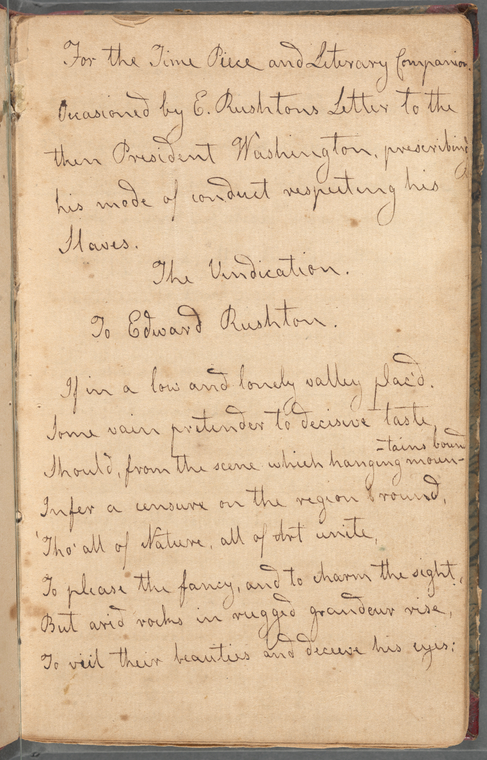 For the Time Piece and Literary Companion.
Occasioned by E. Rushtons Letter to the
then President Washington, prescribing
his mode of conduct respecting his
Slaves.
The Vindication.
To Edward Rushton.
If in a low and lonely valley plac'd.
Some vain pretender to decisive taste,
=tains boun
Should, from the scene which hanging moun-
Infer a censure on the region round,
Tho' all of Nature, all of Art unite,
To please the fancy, and to charm the sight,
But arid rocks in rugged grandeur rise,
To veil their beauties and deceive his eyes: